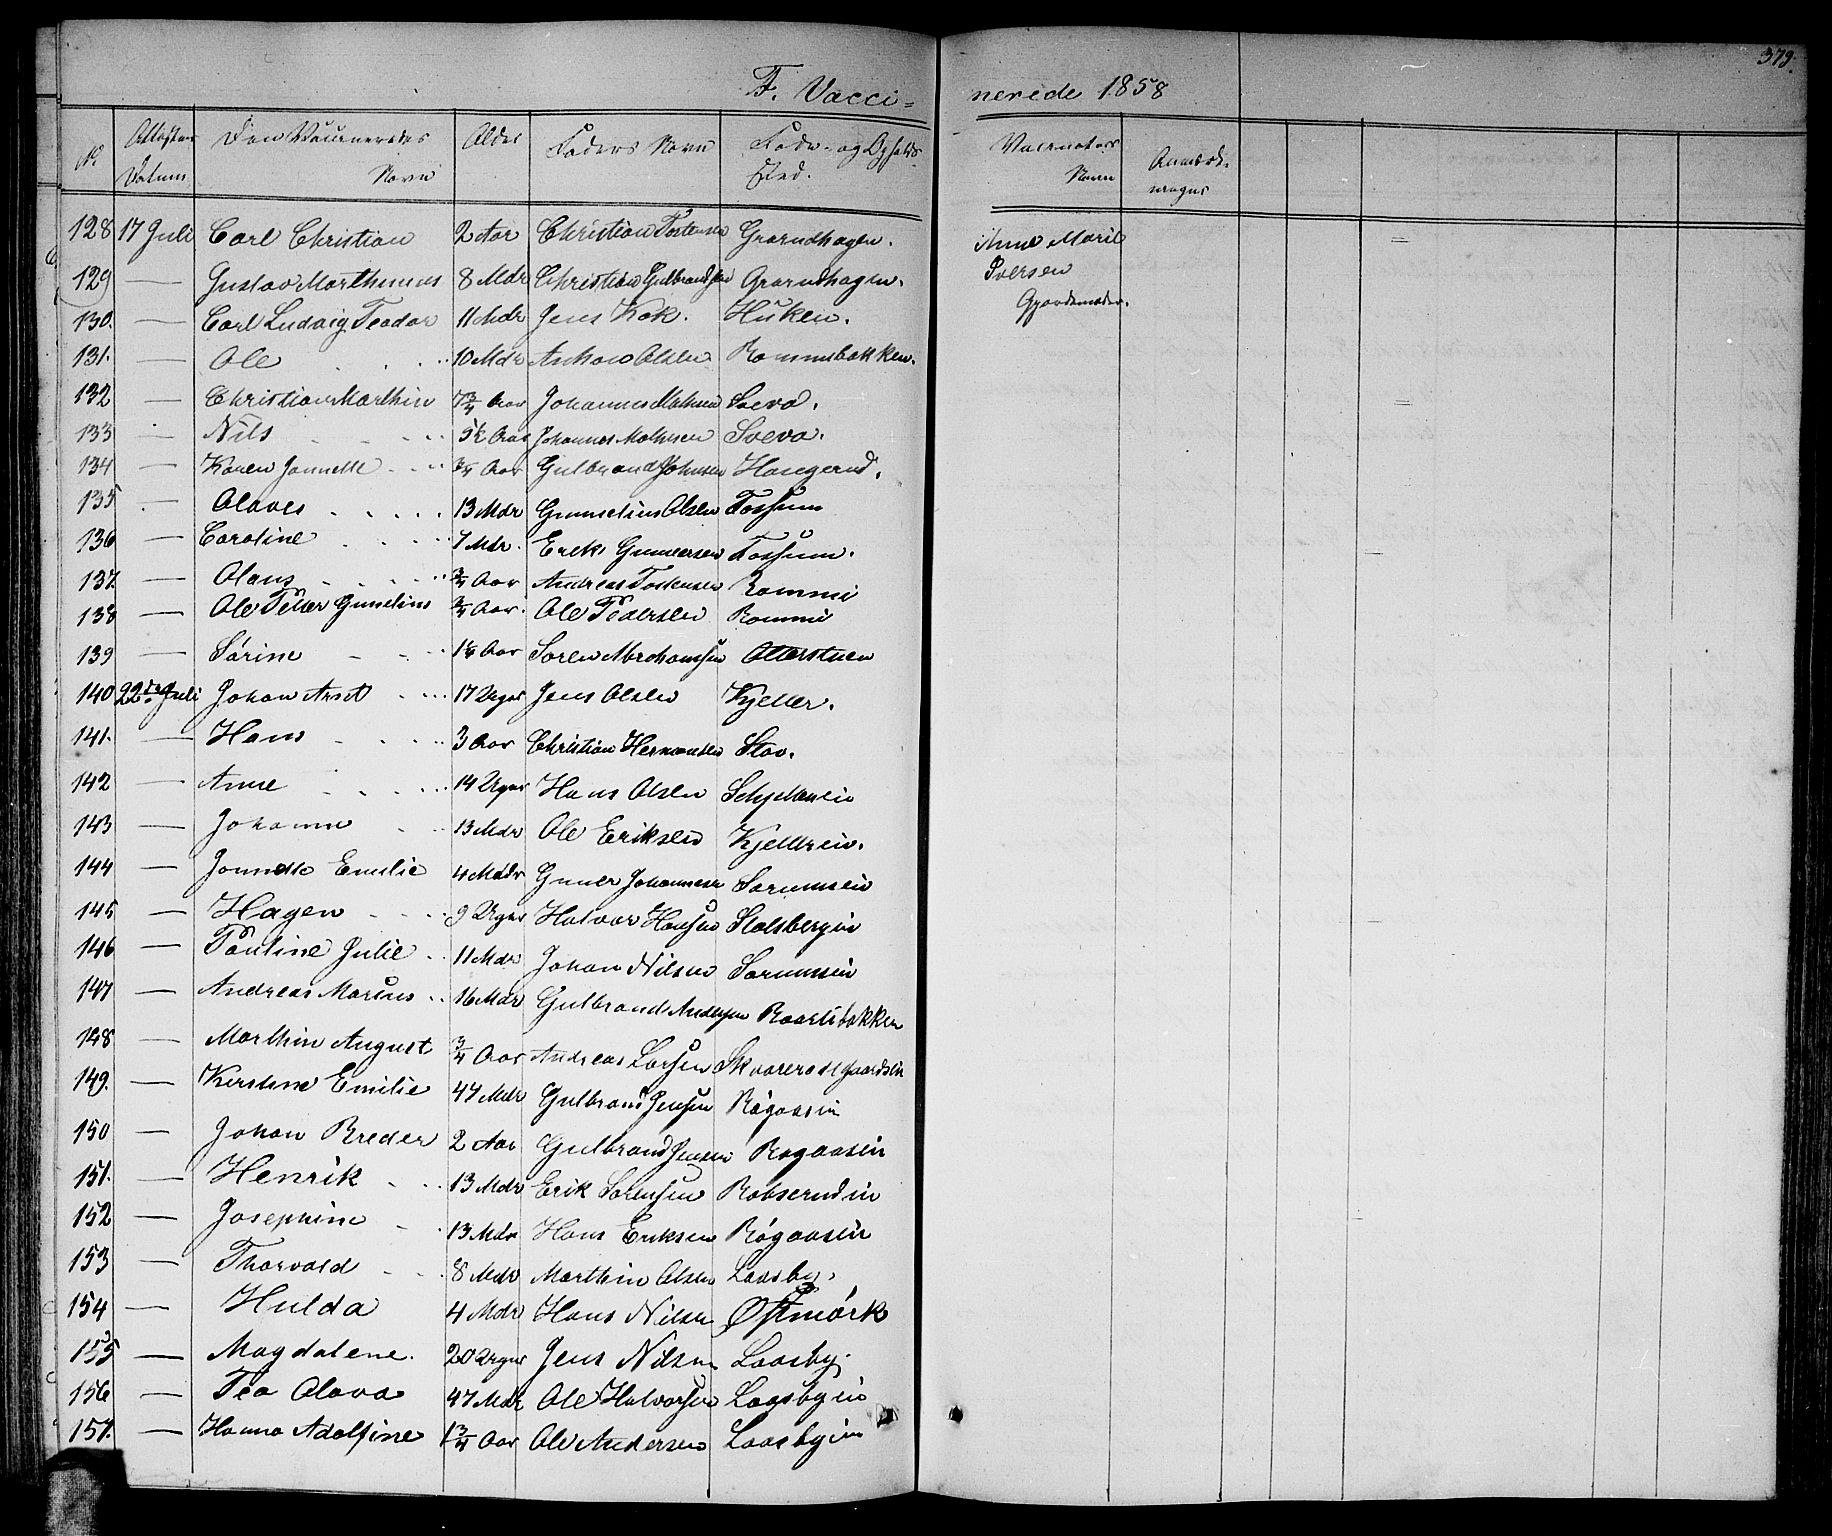 379.
F. Vaccinerede 1858
No. Attestens Datum Den Vaccineredes Navn Alder Faders Navn Føde- og Opholds-Sted. Vaccinators Navn Anmærkninger
128 17 Juli Carl Christian 2 Aar Christian Tostensen Grarudhagen. Anne Marie
129 — Gustav Marthinius 8 Mdr Christian Gulbrandsen Grarudhagen. Iversen
130. — Carl Ludvig Teodor 11 Mdr Jens Kok. Huken. Gjordemoder.
131. — Ole 10 Mdr Anthon Olsen Rommebakken.
132 — Christian Marthin 7¾ Aar Johannes Mathesen Svevo.
133 — Nils 5½ Aar Johannes Mathesen Svevo.
134 — Karen Jannette ¾ Aar Gulbrand Johnsen Haugerud.
135 — Olaves 13 Mdr Gunnelius Olsen Fossum
136 — Caroline 7 Mdr. Erek Gunnersen Fossum.
137. — Olaus ¾ Aar Andreas Tostensen Romme
138 — Ole Petter Gunelius ¾ Aar. Ole Pedersen Romme
139 — Sørine 1½ Aar Soren Abrahamsen Otterstuen
140 22de Juli Johan Anst 17 Uger Jens Olsen Kjeller.
141. — Hans 3 Aar Christian Hermansen Stov.
142 — Anne 14 Uger Hans Olsen
143 — Johanne 13 Mdr Ole Eriksen Kjellerein.
144 — Jannette Emilie 4 Mddr Guner Johannesen Sørumsein
145 — Hagen 9 Uger Halvor Hansen Stolsbergein
146 — Pauline Julie 11 Mdr Johan Nilsen Sørumsein
147 — Andreas Marius 16 Mdr Gulbrand Andersen
148 — Marthin August ¾ Aar Andreas Larsen
149. — Kirstine Emilie 47 Mdr Gulbrand Jensen Røgaasein
150 — Johan Breder 2 Aar Gulbrand Jensen Røgaasein
151. — Henrik 13 Mdr Erik Sørensen Robserudein
152 — Josephine 13 Mdr Hans Eriksen Røgaasein
153 — Thorvald 8 Mdr Marthin Olsen Laasby.
154 — Hulda 4 Mdr Hans Nilsen Østmørk
155 — Magdalene. 20 Uger Jens Nilsen Laasby.
156 — Tea Olava 47 Mdr Ole Halvorsen Laasbyein
157. — Hanna Adolfine 1¾ Aar Ole Andersen Laasbyein